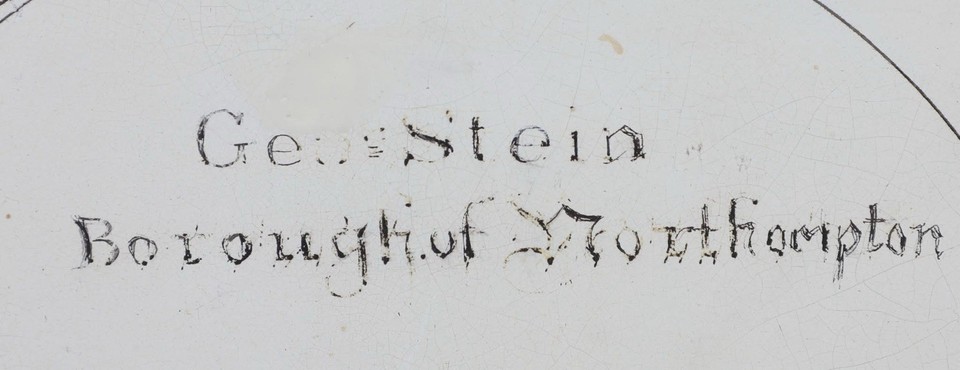 Geo: Stein
Borough of Northampton